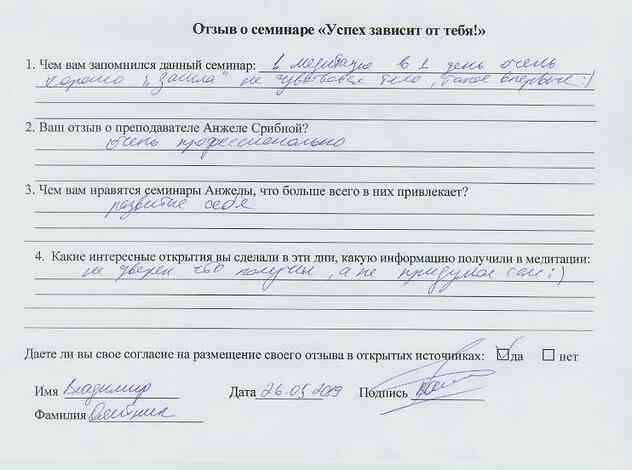 Отзыв о семинаре «Успех зависит от тебя!»
1. Чем вам запомнился данный семинар: 1 медитация в 1 день очень
хорошо "зашла" не чувствовал тело, такое впервые :)
2. Ваш отзыв о преподавателе Анжеле Срибной?
очень профессионально
3. Чем вам нравятся семинары Анжелы, что больше всего в них привлекает?
развитие себя
4. Какие интересные открытия вы сделали в эти дни, какую информацию получили в медитации:
не уверен что получил, а не придумал сам :)
Даете ли вы свое согласие на размещение своего отзыва в открытых источниках: да нет
Имя Владимир Дата 26.05.2019 Подпись
Фамилия Олейник